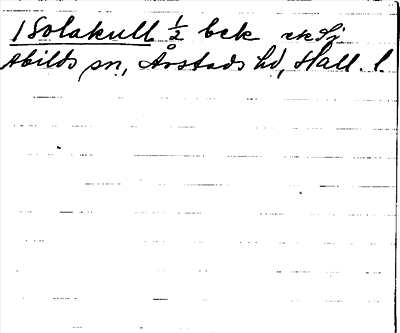 1 Solakull 1/2 bek ek Sj
Abilds sn, Årstads hd, Hall. l.